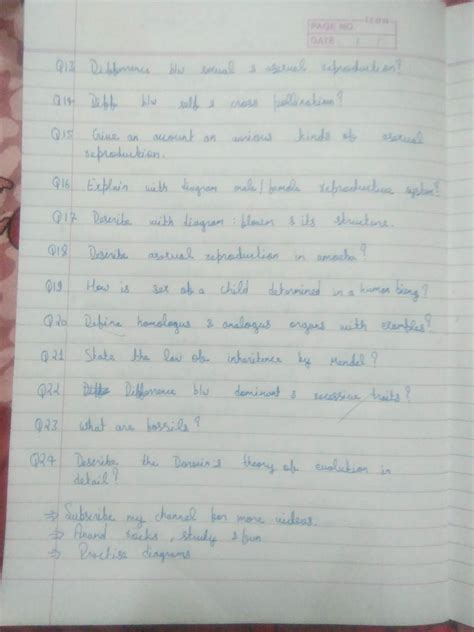 PAGE NO.
DATE: / /
Q13 Difference b/w sexual & asexual reproduction?
Q14 Diff b/w self & cross pollination?
Q15 Give an account on various kinds of asexual
reproduction.
Q16 Explain with diagram male/female reproductive system?
Q17 Describe with diagram: flower & its structure.
Q18 Describe asexual reproduction in amoeba?
Q19 How is sex of a child determined in a human being?
Q20 Define homologus & analogus organs with examples?
Q21 State the law of inheritence by Mendel?
Q22 Difference b/w dominant & recessive traits?
Q23 What are fossils?
Q24 Describe the Darwin's theory of evolution in
detail?
⇒ Subscribe my channel for more videos.
⇒ Anand rocks, study & fun
⇒ Practise diagrams